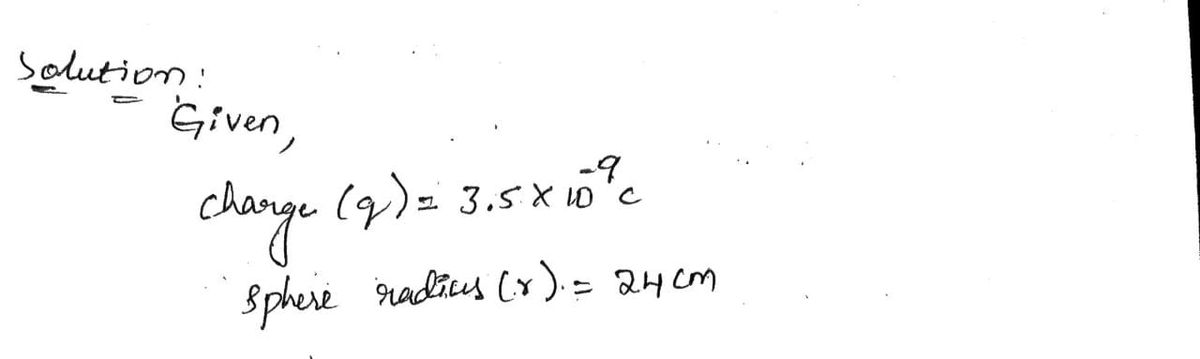 Solution:
Given,
charge (q) = 3.5 × 10⁻⁹ c
sphere radius (r). = 24 cm